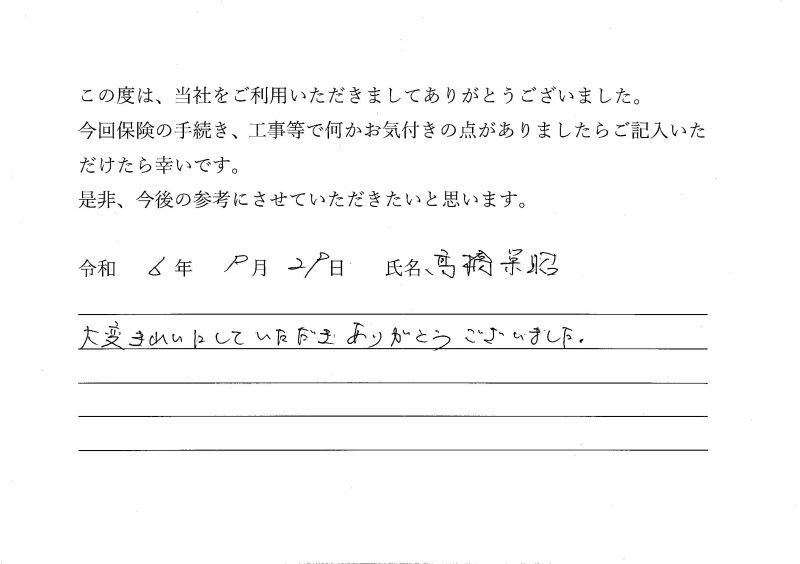 この度は、当社をご利用いただきましてありがとうございました。
今回保険の手続き、工事等で何かお気付きの点がありましたらご記入いた
だけたら幸いです。
是非、今後の参考にさせていただきたいと思います。
令和 6 年 月 日 氏名、高橋栄昭
大変きれいにしていただきありがとうございました。